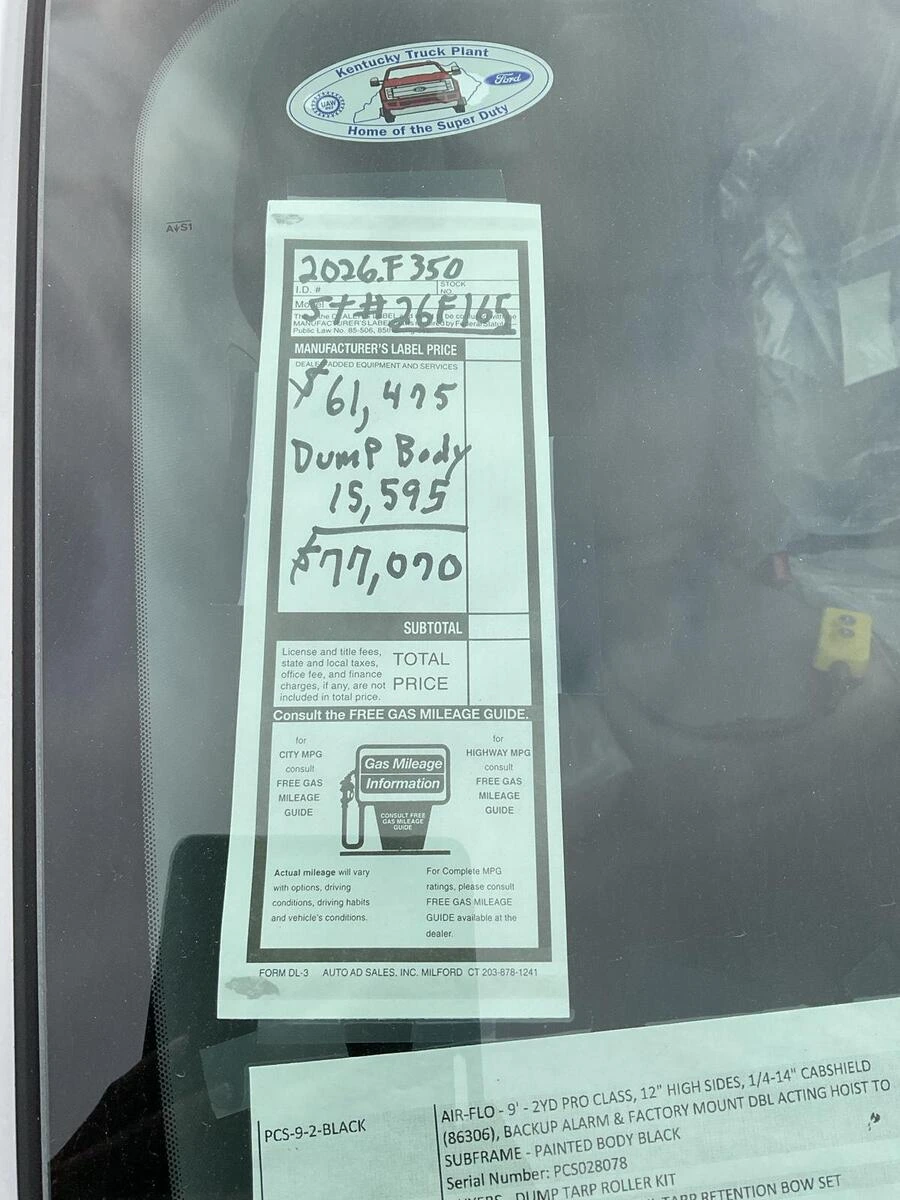 Kentucky Truck Plant
UAW
Ford
Home of the Super Duty
A↓S1
2026 F350
I.D. #
STOCK NO.
Model
St# 26F165
MANUFACTURER'S LABEL
Public Law No. 85-506, 85th
MANUFACTURER'S LABEL PRICE
DEALER ADDED EQUIPMENT AND SERVICES
$61,475
Dump Body
15,595
$77,070
SUBTOTAL
License and title fees,
state and local taxes,
office fee, and finance
charges, if any, are not
included in total price.
TOTAL
PRICE
Consult the FREE GAS MILEAGE GUIDE.
for
CITY MPG
consult
FREE GAS
MILEAGE
GUIDE
Gas Mileage
Information
CONSULT FREE
GAS MILEAGE
GUIDE
for
HIGHWAY MPG
consult
FREE GAS
MILEAGE
GUIDE
Actual mileage will vary
with options, driving
conditions, driving habits
and vehicle's conditions.
For Complete MPG
ratings, please consult
FREE GAS MILEAGE
GUIDE available at the
dealer.
FORM DL-3 AUTO AD SALES, INC. MILFORD CT 203-878-1241
PCS-9-2-BLACK
AIR-FLO - 9' - 2YD PRO CLASS, 12" HIGH SIDES, 1/4-14" CABSHIELD
(86306), BACKUP ALARM & FACTORY MOUNT DBL ACTING HOIST TO
SUBFRAME - PAINTED BODY BLACK
Serial Number: PCS028078
DUMP TARP ROLLER KIT
TARP RETENTION BOW SET